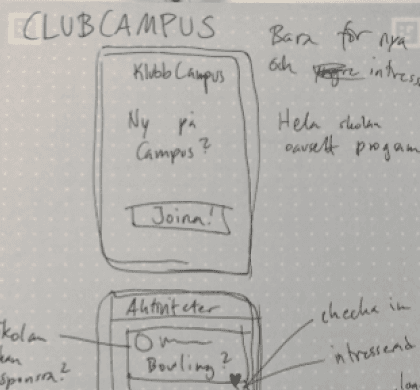 CLUBCAMPUS
Bara för nya
och intress
KlubbCampus
Ny på
Campus?
Hela skolan
oavsett program
Joina!
Aktiviteter
checka in
skolan
kan
sponsra?
Bowling?
intresserad